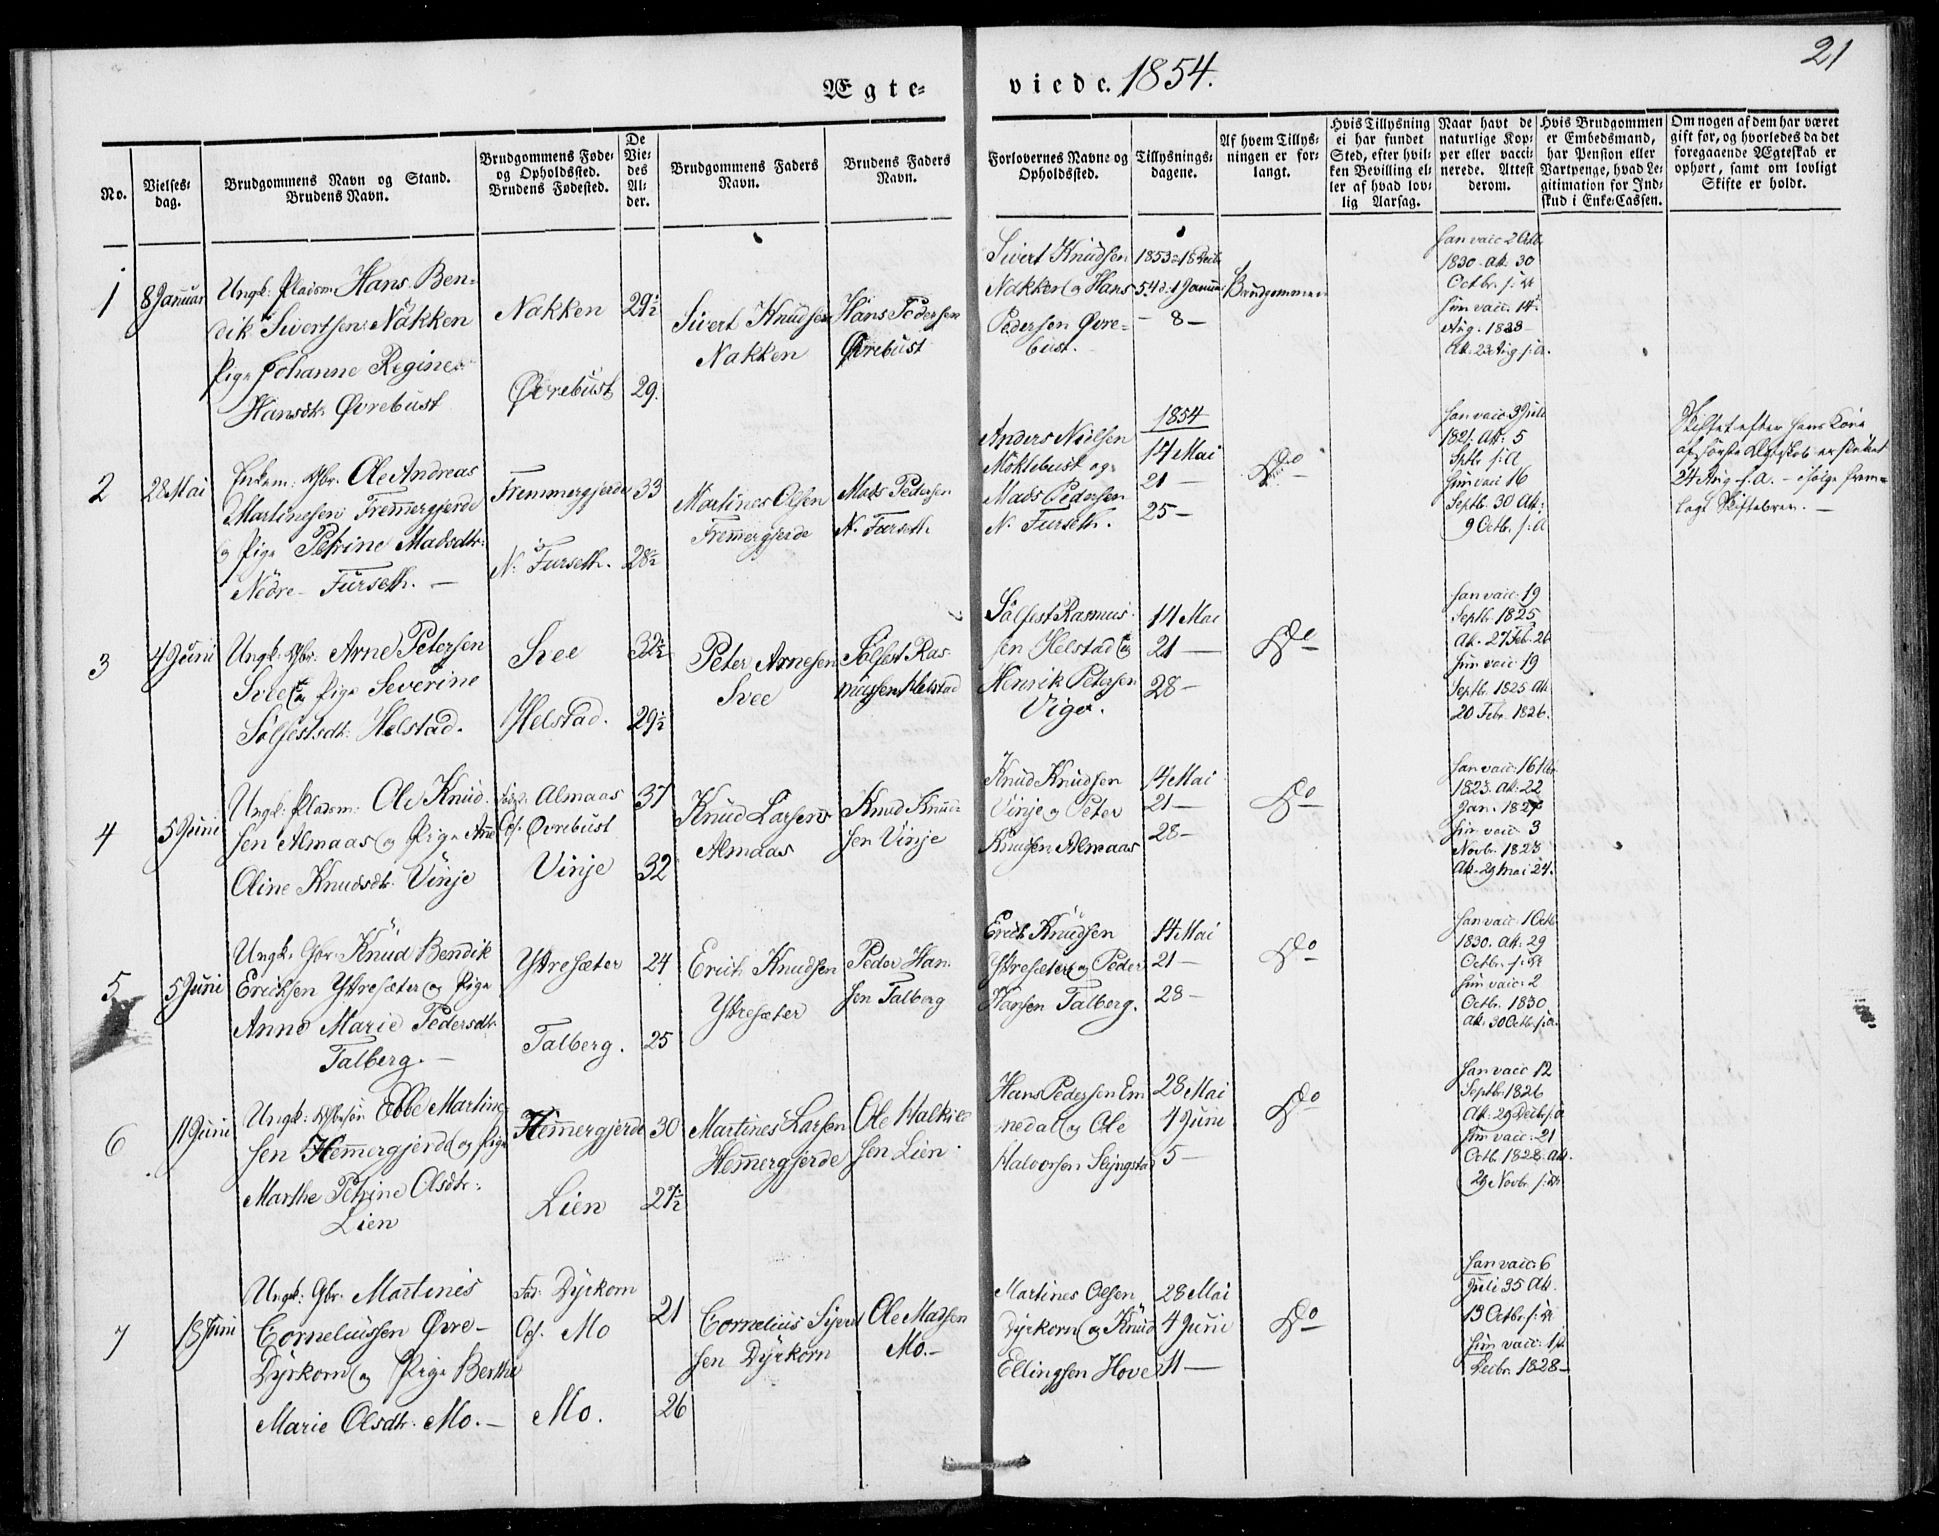 21
Ægte-
viede. 1854.
No.
Vielses-
dag.
Brudgommens Navn og Stand.
Brudens Navn.
Brudgommens Føde-
og Opholdssted.
Brudens Fødested.
De
Vie-
des
Al-
der.
Brudgommens Faders
Navn.
Brudens Faders
Navn.
Forlovernes Navne og
Opholdssted.
Tillysnings-
dagene.
Af hvem Tillys-
ningen er for-
langt.
Hvis Tillysning
ei har fundet
Sted, efter hvil-
ken Bevilling el-
ler af hvad lov-
lig Aarsag.
Naar havt de
naturlige Kop-
per eller vacci-
nerede. Attest
derom.
Hvis Brudgommen
er Embedsmand,
har Pension eller
Vartpenge, hvad Le-
gitimation for Ind-
skud i Enke-Cassen.
Om nogen af dem har været
gift før, og hvorledes da det
foregaaende Ægteskab er
ophørt, samt om lovligt
Skifte er holdt.
1
8 Januar
Ungk: Pladsm: Hans Ben-
dik Sivertsen Nakken
Pige Johanne Regine
Hansdtr Øvrebust
Nakken
Øvrebust
29½
29.
Sivert Knudsen
Nakken
Hans Pedersen
Øvrebust
Sivert Knudsen
Nakken og Hans
Pedersen Øvre-
bust.
1853 = 18 Decbr
54 d: 1 Januar
— 8 —
Brudgommen
Han vacc 2 Octb.
1830 - At. 30
Octbr. s: A
Hun vacc. 14
Aug. 1828 -
At. 23 Aug s: a.
2
28 Mai
Enkem: Gbr. Ole Andreas
Martinesen Fremmergjerde
og Pige Petrine Madsdtr:
Nedre Furseth. —
Fremmergjerde
N. Furseth.
33
28½
Martines Olsen
Fremmergjerde
Mads Pedersen
N. Furseth
Anders Nielsen
Moklebust og
Mads Pedersen
N. Furseth.
1854
14 Mai
21 —
25 —
Do
Han vacc: 3 Juli
1821. At: 5
Sptb s: A
Hun vacc 16
Septb. 30 At:
9 Octb. s: A
Skiftet efter hans Kone
af første Ægteskab er sluttet
24 Aug. f. A. - ifølge frem-
lagt Skiftebrev. —
3
4 Juni
Ungk: Gbr: Arne Petersen
Svee og Pige Severine
Sølfestsdtr: Helstad.
Svee
Helstad.
32½
29½
Peter Arnesen
Svee
Sølfest Ras-
mussen Helstad
Sølfest Rasmus-
sen Helstad og
Henrik Petersen
Viger.
14 Mai
21 —
28 —
Do
Han vacc: 19
Septb. 1825
At. 27 Feb. 26
Hun vacc: 19
Septbr. 1825 At.
20 Febr. 1826.
4
5 Juni
Ungk: Pladsm: Ole Knud-
sen Almaas og Pige Ane
Oline Knudsdtr. Vinje
Almaas
Ops. Øvrebust
Vinje
37
32
Knud Larsen
Almaas
Knud Knud-
sen Vinje
Knud Knudsen
Vinje og Peter
Knudsen Almaas
14 Mai
21 —
28 —
Do
Han vacc: 16
1823. At. 22
Jan. 1827
Hun vacc: 3
Novb. 1823
At. 29 Mai 24.
5
5 Juni
Ungk: Gbr: Knud Bendik
Ericksen Ytresæter og Pige
Anne Marie Pedersdtr
Talberg. —
Ytresæter
Talberg.
24
25
Erich Knudsen
Ytresæter
Peder Han-
sen Talberg
Erich Knudsen
Ytresæter og Peder
Hansen Talberg.
14 Mai
21 —
28 —
Do
Han vacc: 1 Octb
1830. At: 29
Octbr. s: A
Hun vacc: 2
Octbr. 1830.
At. 30 Octb. s: a.
6
11 Juni
Ungk: Ebbe Martine-
sen Hemmergjerde og Pige
Marthe Petrine Olsdtr:
Lien
Hemmergjerde
Lien
30
27½
Martines Larsen
Hemmergjerde
Ole Halkil-
sen Lien
Hans Pedersen Em-
nedal og Ole
Halvorsen Slyngstad
28 Mai
4 Juni
5 —
Do
Han vacc 12
Septb. 1826
At. 29 Decb. s: a
Hun vacc: 21
Octb. 1828. At.
29 Novbr. s: A
7
18 Juni
Ungk: Gbr. Martinus
Corneliussen Øvre-
Dyrkorn og Pige Berthe
Marie Olsdtr. Mo. —
Fød: Dyrkorn
Ops. Mo
Mo.
21
26
Cornelius Siver-
sen Dyrkorn
Ole Madsen
Mo. —
Martines Olsen
Dyrkorn og Knud
Ellingsen Hove
28 Mai
4 Juni
11 —
Do
Han vacc: 6
Juli 35 At.
13 Octbr. s: A
Hun vacc: 14
Decbr. 1828 —